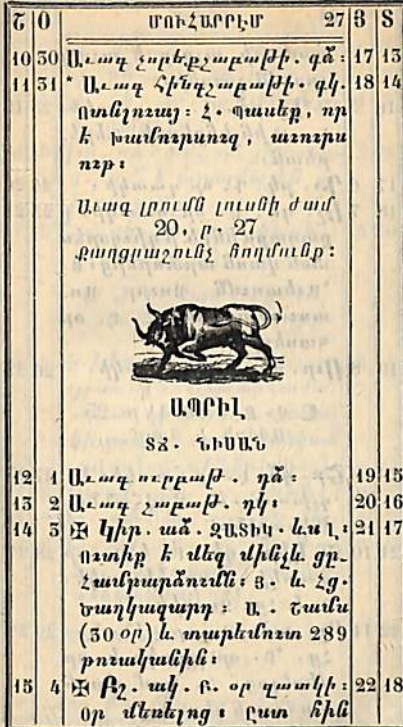 Շ Օ ՄՈՒՀԱՐՐԷՄ 27 Յ Տ
10 30 Աւագ չորեքշաբաթի. գձ: 17 13
11 31 * Աւագ Հինգշաբաթի. գկ. 18 14
Ոտնլուայ: Հ. պասեք, որ
է խամուրսուզ, աւուրս
ութ:
Աւագ լրումն լուսնի ժամ
20, ր. 27
Քաղցրաշունչ հողմունք:
ԱՊՐԻԼ
ՏՃ. ՆԻՍԱՆ
12 1 Աւագ ուրբաթ. դձ: 19 15
13 2 Աւագ շաբաթ. դկ: 20 16
14 3 ✠ Կիր. աձ. ԶԱՏԻԿ. ևս լ: 21 17
Ուտիք է մեզ մինչև ցը-
Համբարձումն: Յ. և Հց.
Ծաղկազարդ: Ա. Շամս
(30 օր) և տարեմուտ 289
թուականին:
15 4 ✠ Բշ. ակ. Բ. օր զատկի: 22 18
Օր մեռելոց: Ըստ հին